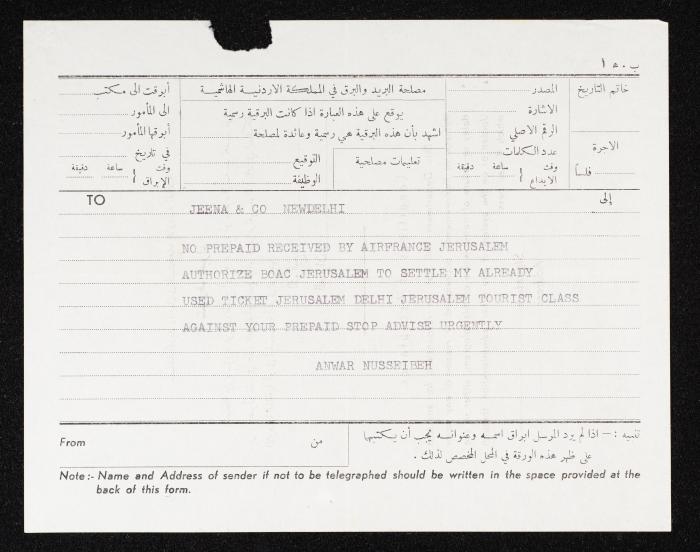 ب.ع ١
أبرقت الى مكتب
الى المأمور
أبرقها المأمور
في تاريخ
وقت الإبراق { ساعة دقيقة
مصلحة البريد والبرق في المملكة الاردنية الهاشمية
يوقع على هذه العبارة اذا كانت البرقية رسمية
اشهد بأن هذه البرقية هي رسمية وعائدة لمصلحة
التوقيع
الوظيفة
تعليمات مصلحية
المصدر
الاشارة
الرقم الاصلي
عدد الكلمات
وقت الايداع { ساعة دقيقة
خاتم التاريخ
الاجرة
فلساً
TO
إلى
JEENA & CO NEWDELHI
NO PREPAID RECEIVED BY AIRFRANCE JERUSALEM
AUTHORIZE BOAC JERUSALEM TO SETTLE MY ALREADY
USED TICKET JERUSALEM DELHI JERUSALEM TOURIST CLASS
AGAINST YOUR PREPAID STOP ADVISE URGENTLY
ANWAR NUSSEIBEH
From
من
تنبيه :- اذا لم يرد المرسل ابراق اسمه وعنوانه يجب أن يكتبها
على ظهر هذه الورقة في المحل المخصص لذلك .
Note :- Name and Address of sender if not to be telegraphed should be written in the space provided at the
back of this form.